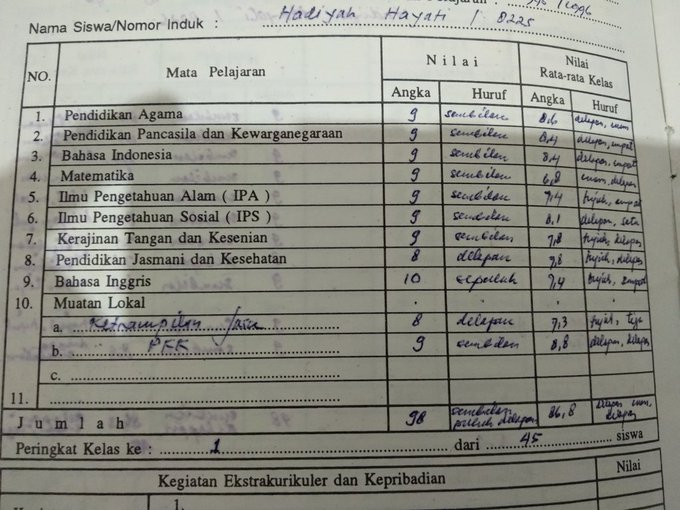 Pelajaran :
Nama Siswa/Nomor Induk : Hadiyah Hayati / 8225
NO. Mata Pelajaran Nilai Nilai Rata-rata Kelas
Angka Huruf Angka Huruf
1. Pendidikan Agama 9 sembilan 8,6 delapan, enam
2. Pendidikan Pancasila dan Kewarganegaraan 9 sembilan 8,4 delapan, empat
3. Bahasa Indonesia 9 sembilan 8,4 delapan, empat
4. Matematika 9 sembilan 6,8 enam, delapan
5. Ilmu Pengetahuan Alam ( IPA ) 9 sembilan 7,4 tujuh, empat
6. Ilmu Pengetahuan Sosial ( IPS ) 9 sembilan 8,1 delapan, satu
7. Kerajinan Tangan dan Kesenian 9 sembilan 7,8 tujuh, delapan
8. Pendidikan Jasmani dan Kesehatan 8 delapan 7,8 tujuh, delapan
9. Bahasa Inggris 10 sepuluh 7,4 tujuh, empat
10. Muatan Lokal
a. Ketrampilan Jasa 8 delapan 7,3 tujuh, tiga
b. PKK 9 sembilan 8,8 delapan, delapan
c.
11.
Jumlah 98 sembilan puluh delapan 86,8 delapan enam, delapan
Peringkat Kelas ke : 1 dari 45 siswa
Kegiatan Ekstrakurikuler dan Kepribadian Nilai
1.